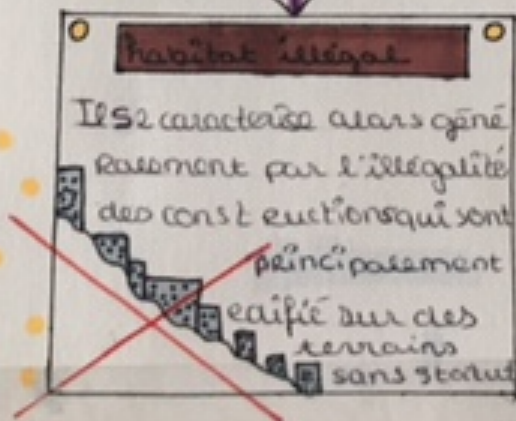 habitat illégal
Il s2 caracterise alors géné
ralement par l'illégalité
des constructions qui sont
principalement
edifié sur des
terrains
sans statut